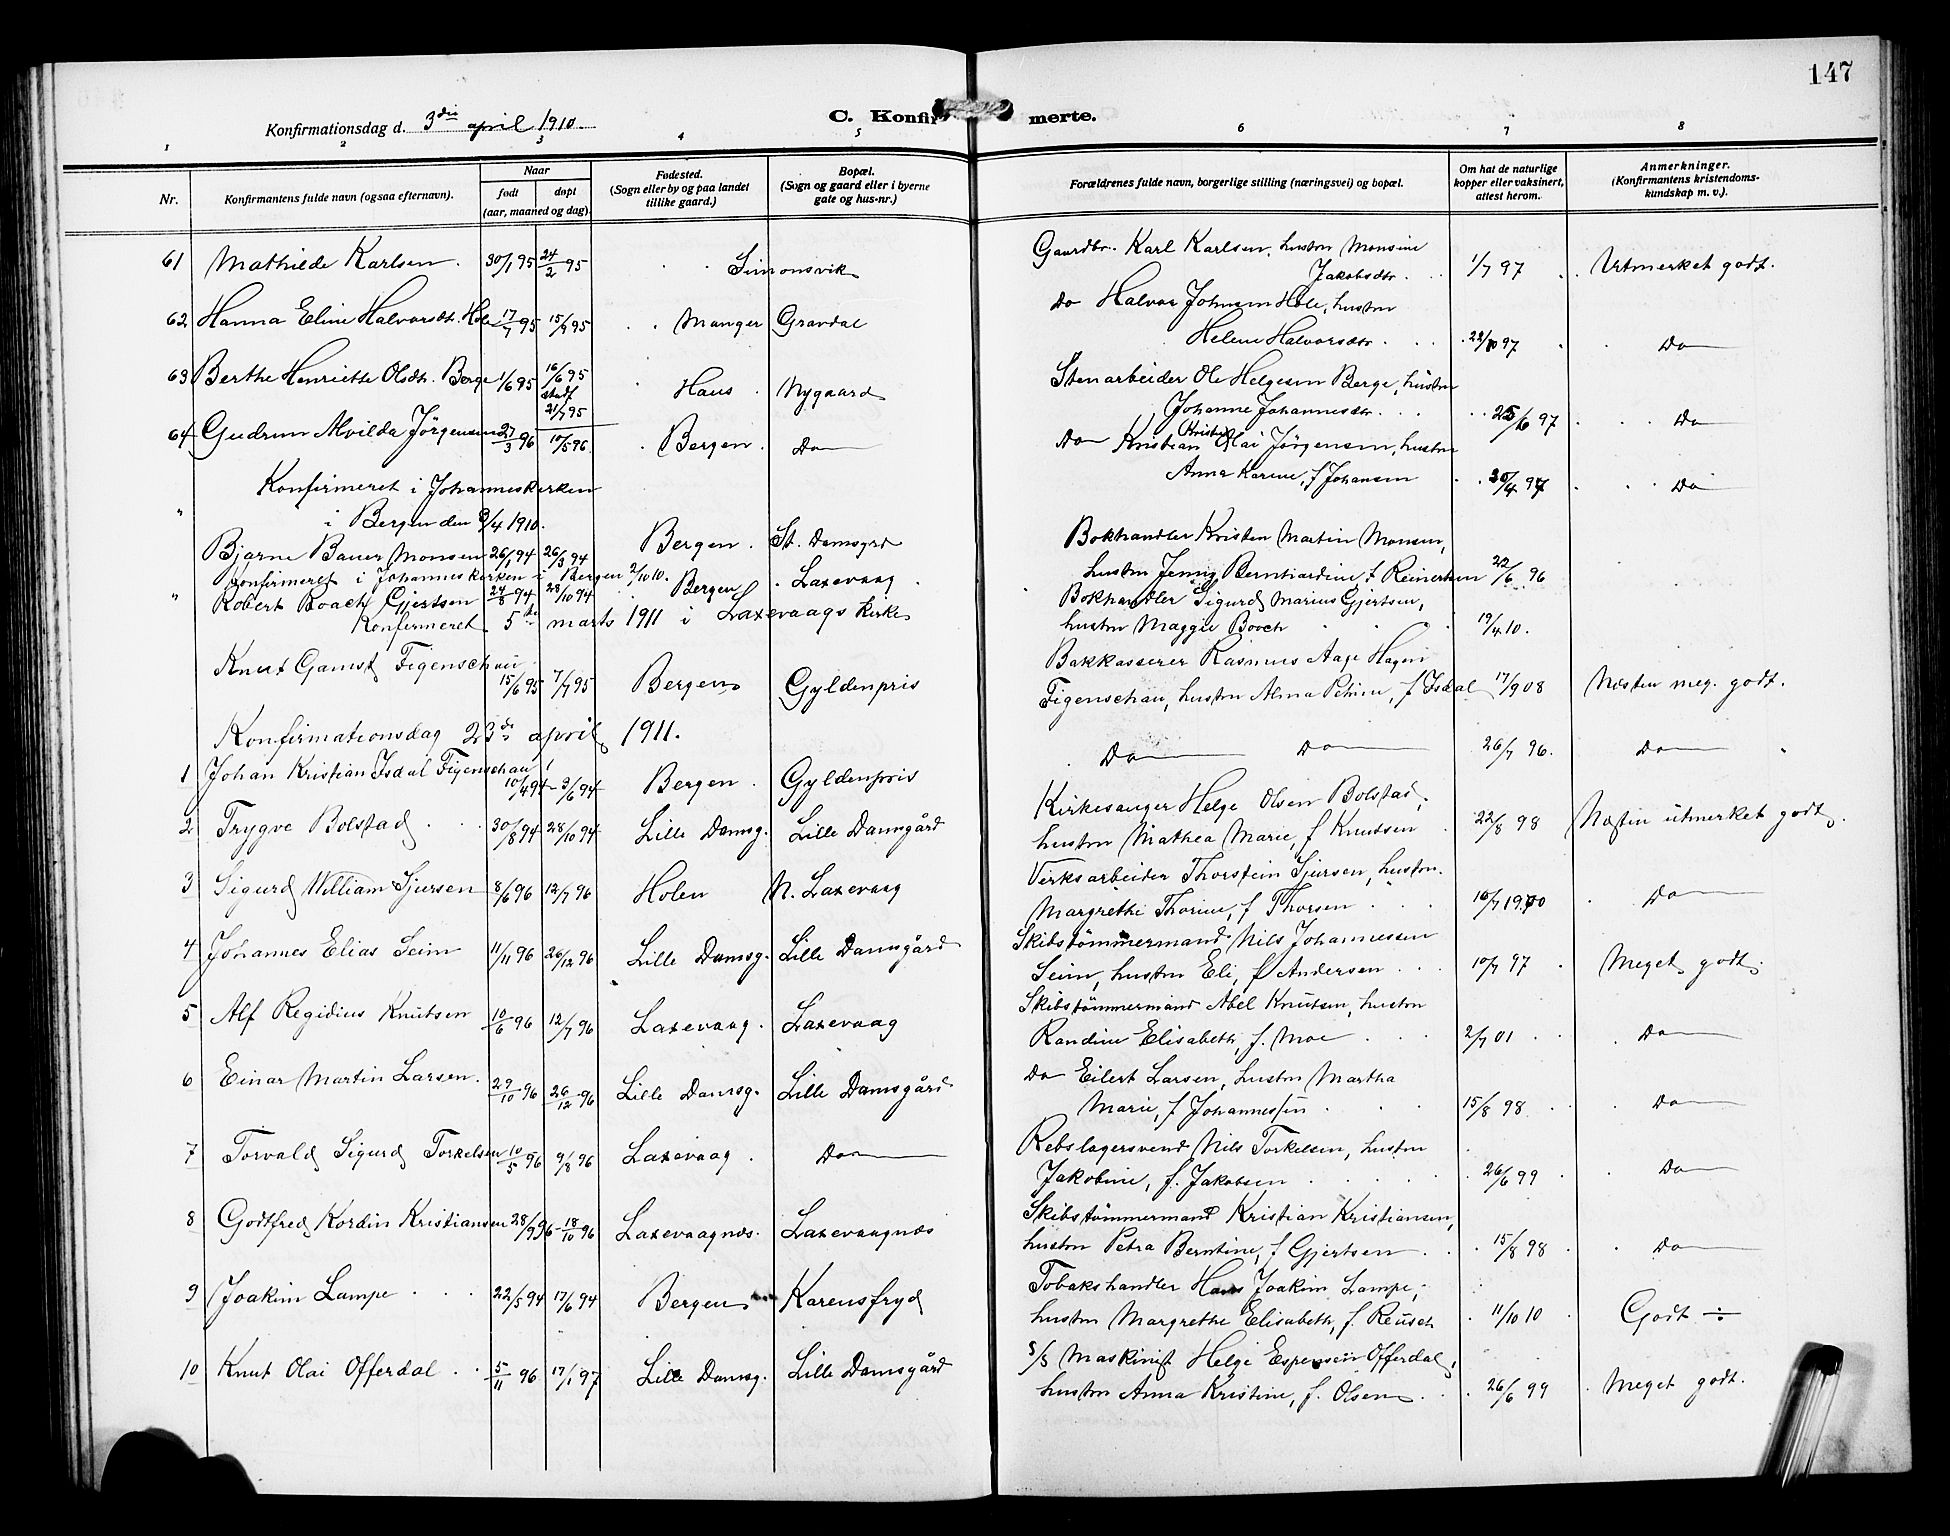 147
Konfirmationsdag d. 3die april 1910.
C. Konfir merte.
1 2 3 4 5 6 7 8
Nr.
Konfirmantens fulde navn (ogsaa efternavn).
Naar
født
døpt
(aar, maaned og dag).
Fødested.
(Sogn eller by og paa landet
tillike gaard.)
Bopæl.
(Sogn og gaard eller i byerne
gate og hus-nr.)
Forældrenes fulde navn, borgerlige stilling (næringsvei) og bopæl.
Om hat de naturlige
kopper eller vaksinert,
attest herom.
Anmerkninger.
(Konfirmantens kristendoms-
kundskap m. v.).
61 Mathilde Karlsen. 30/1 95 24/2 95 Simonsvik Gaardbr. Karl Karlsen, hustru Monsine
Jakobsdtr. 1/7 97 Utmerket godt.
62 Hanna Eline Halvorsdtr. Hole 17/7 95 15/9 95 Manger Gravdal Do Halvor Johnsen Hole, hustru
Helene Halvorsdtr. 22/10 97 Do
63 Berthe Henriette Olsdtr. Berge 1/6 95 16/6 95
stadf
21/7 95 Haus Nygaard Stenarbeider Ole Helgesen Berge, hustru
Johanne Johannesdtr. 25/6 97 Do
64 Gudrun Alvilda Jörgensen 27/3 96 10/5 96. Bergen. Do Do Kristian Olai Jörgensen, hustru
Anna Karine, f Johansen 30/4 97 Do
Konfirmeret i Johanneskirken
" i Bergen den 3/4 1910.
Bjarne Bauer Monsen 26/1 94 26/3 94 Bergen. St. Damsgrd Bokhandler Kristen Martin Monsen,
hustru Jenny Bernhardine f Reinertsen 22/6 96
Konfirmeret i Johanneskirken i Bergen 2/10 10.
" Robert Boach Gjertsen 24/8 94 28/10 94 Bergen Laxevaag Bokhandler Sigurd Marius Gjertsen,
hustru Maggie Booch 19/4 10.
Konfirmeret 5te marts 1911 i Laxevaags kirke
Knut Gamst Figenschau 15/6 95 7/7 95 Bergen Gyldenpris Bakkasserer Rasmus Aage Hagen
Figenschau, hustru Alma Petrine, f Isdal 17/9 08 Næsten meg. godt.
Konfirmationsdag 23de april 1911.
1 Johan Kristian Isdal Figenschau 10/4 94 3/6 94 Bergen. Gyldenpris Do Do 26/7 96. Do "
2 Trygve Bolstad 30/8 94 28/10 94 Lille Damsg. Lille Damsgård Kirkesanger Helge Olsen Bolstad,
hustru Mathea Marie, f Knutsen 22/8 98 Næsten utmerket godt.
3 Sigurd William Sjursen 8/6 96 12/7 96 Holen N. Laxevaag Verksarbeider Thorstein Sjursen, hustru
Margrethe Thorine, f Thorsen 10/7 1900 Do
4 Johannes Elias Seim 11/11 96 26/12 96 Lille Damsg. Lille Damsgård Skibstömmermand Nils Johannessen
Seim, hustru Eli, f Andersen 10/7 97 Meget godt.
5 Alf Regidius Knutsen 10/6 96 12/7 96 Laxevaag. Laxevaag Skibstömmermand Abel Knutsen, hustru
Randine Elisabeth, f. Moe 2/7 01 Do
6 Einar Martin Larsen. 29/10 96 26/12 96 Lille Damsg. Lille Damsgård Do Eilert Larsen, hustru Martha
Marie, f Johannessen 15/8 98 Do
7 Torvald Sigurd Torkelsen 10/5 96 9/8 96 Laxevaag. Do Rebslagersvend Nils Torkelsen, hustru
Jakobine, f. Jakobsen 26/6 99 Do
8 Godtfred Kordin Kristiansen 28/9 96 18/10 96 Laxevaagnæs. Laxevaagnæs Skibstömmermand Kristian Kristiansen,
hustru Petra Berntine, f Gjertsen 15/8 98 Do
9 Joakim Lampe 22/5 94 17/6 94 Bergen Karensfryd Tobakshandler Hans Joakim Lampe,
hustru Margrethe Elisabeth, f. Reusch 11/10 10 Godt ÷
10 Knut Olai Offerdal 5/11 96 17/1 97 Lille Damsg. Lille Damsgård S/S Maskinist Helge Espensen Offerdal,
hustru Anna Kristine, f. Olsen 26/6 99 Meget godt.